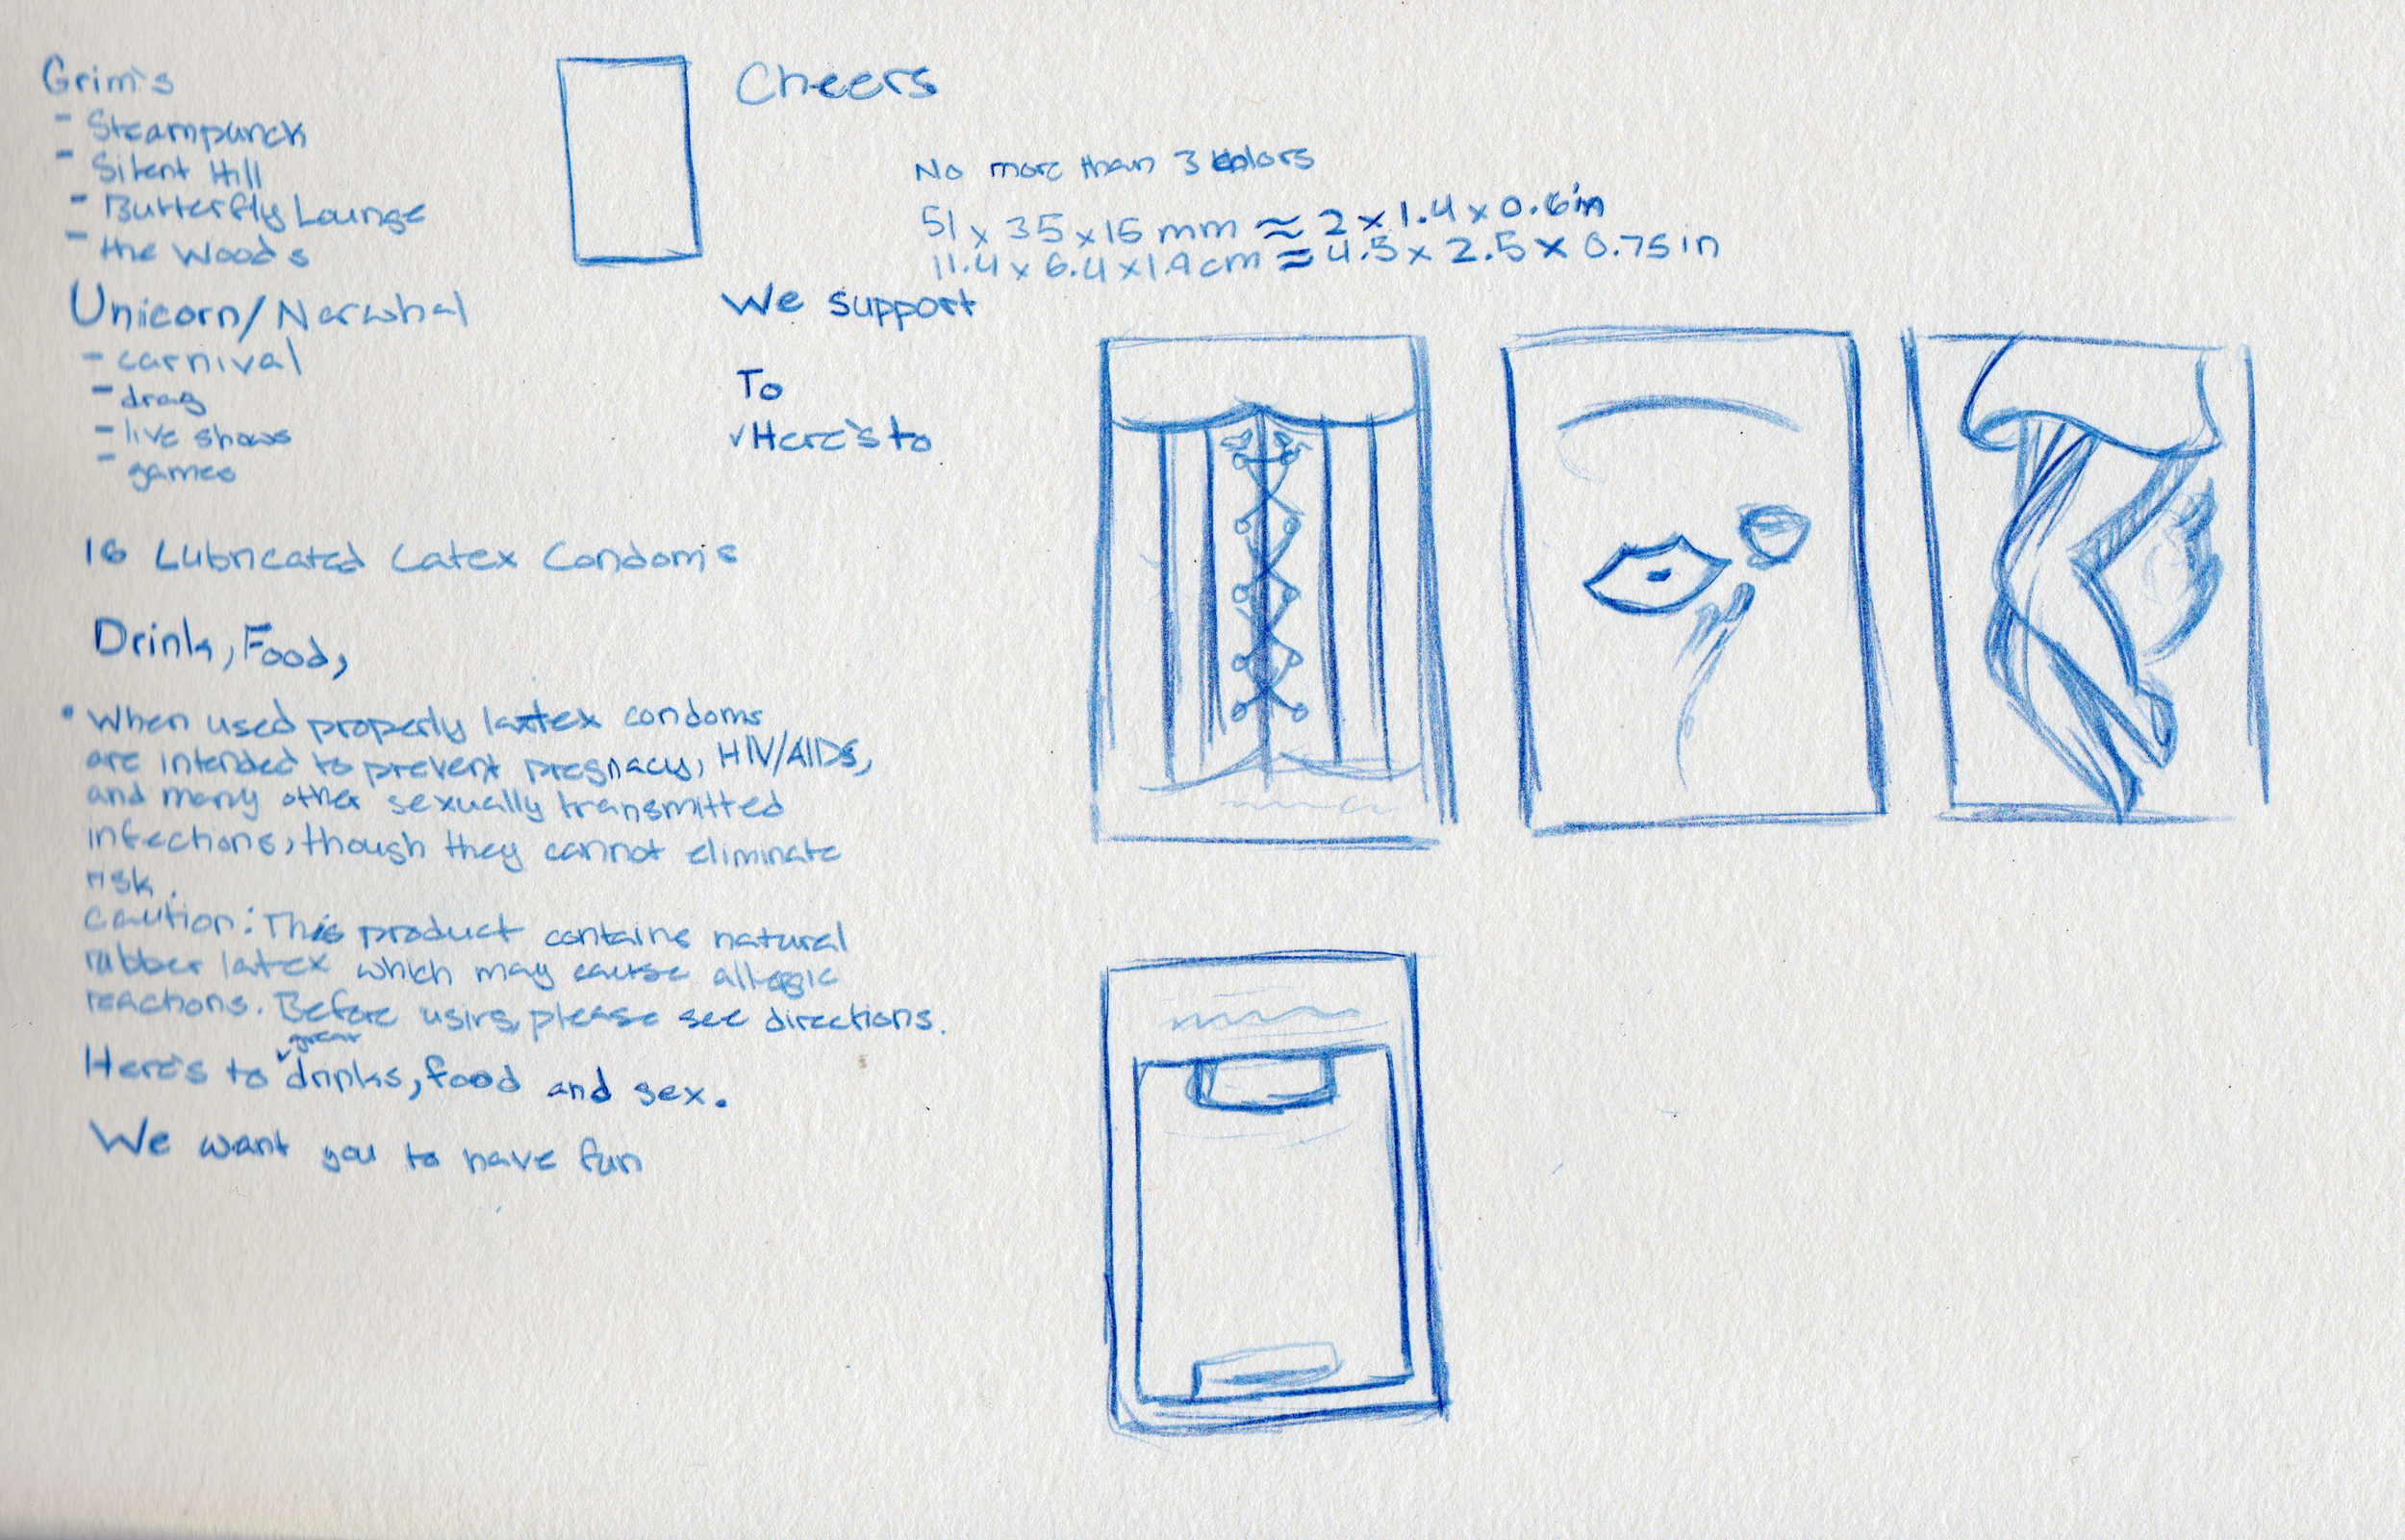 Grim's
- Steampunck
- Silent Hill
- Butterfly Lounge
- the Woods
Unicorn/Narwhal
- carnival
- drag
- live shows
- games
16 Lubricated Latex Condom's
Drink, Food,
• When used properly latex condoms
are intended to prevent pregnacy, HIV/AIDS,
and many other sexually transmitted
infections, though they cannot eliminate
risk.
caution: This product contains natural
rubber latex which may cause allergic
reactions. Before using please see directions.
great
Here's to drinks, food and sex.
We want you to have fun
Cheers
No more than 3 colors
51 x 35 x 15 mm ≈ 2 x 1.4 x 0.6in
11.4 x 6.4 x 1.9 cm ≈ 4.5 x 2.5 x 0.75 in
We support
To
✓Here's to